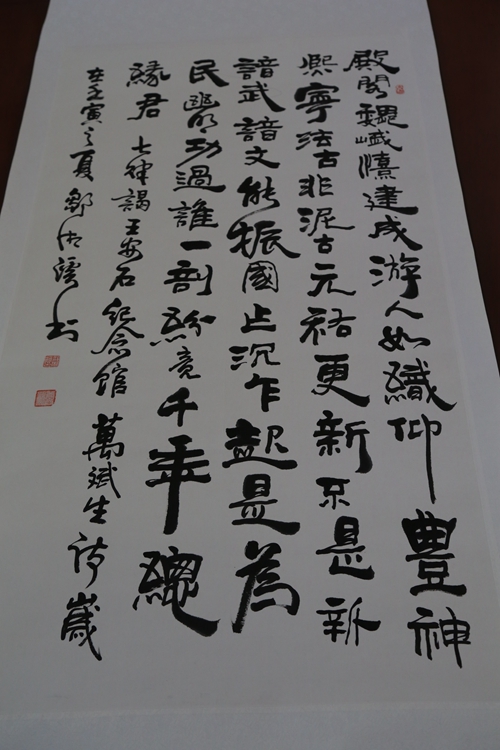 殿閣巍峨憙建成游人如織仰豐神
熙寧法古非泥古元祐更新不是新
諳武諳文能振國止沉乍起是為
民幽明功過誰一剖紛竟千年總
緣君 七律謁王安石紀念館 萬斌生詩 歲
在壬寅之夏鄒 書